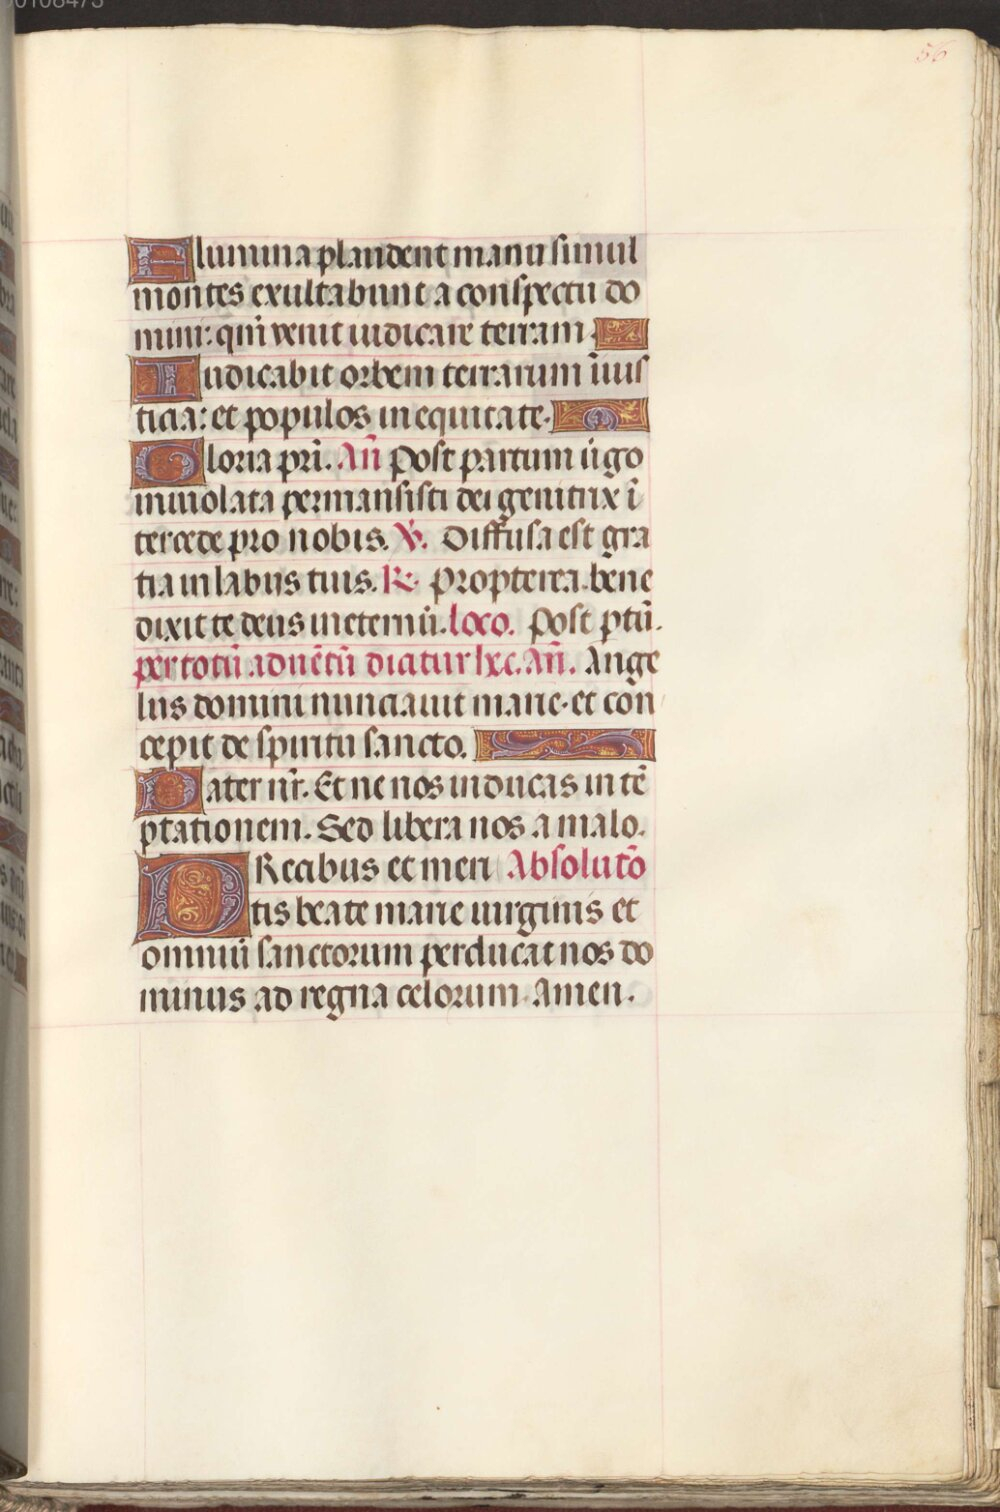 56
Flumina plaudent manu simul
montes exultabunt a conspectu do
mini: qm̃ venit iudicare terram.
Iudicabit orbem terrarum ĩ ius
ticia: et populos in equitate.
Gloria pr̃i. Añ Post partum ũgo
inuiolata permansisti dei genitrix ĩ
tercede pro nobis. ℣. Diffusa est gra
tia in labiis tuis. ℟. Propterea bene
dixit te deus in eternũ. loco. Post ptũ.
per totũ aduẽtũ dicatur hec. Añ. Ange
lus domini nunciauit marie. et con
cepit de spiritu sancto.
Pater nr̃. Et ne nos inducas in tẽ
ptationem. Sed libera nos a malo.
PRecibus et meri Absolutõ
tis beate marie uirginis et
omniũ sanctorum perducat nos do
minus ad regna celorum. Amen.